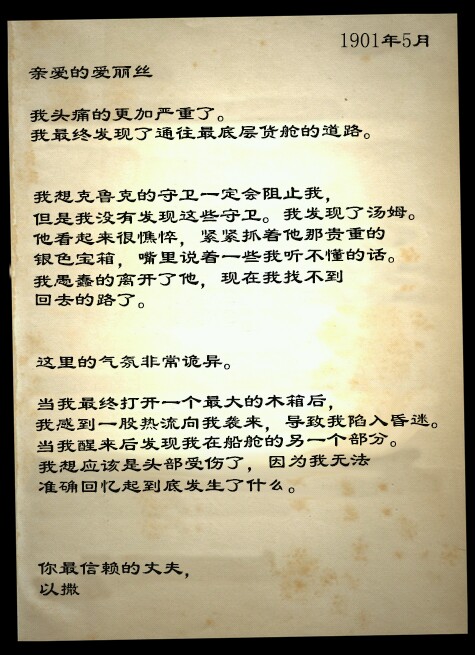 1901年5月
亲爱的爱丽丝
我头痛的更加严重了。
我最终发现了通往最底层货舱的道路。
我想克鲁克的守卫一定会阻止我，
但是我没有发现这些守卫。我发现了汤姆。
他看起来很憔悴，紧紧抓着他那贵重的
银色宝箱，嘴里说着一些我听不懂的话。
我愚蠢的离开了他，现在我找不到
回去的路了。
这里的气氛非常诡异。
当我最终打开一个最大的木箱后，
我感到一股热流向我袭来，导致我陷入昏迷。
当我醒来后发现我在船舱的另一个部分。
我想应该是头部受伤了，因为我无法
准确回忆起到底发生了什么。
你最信赖的丈夫，
以撒